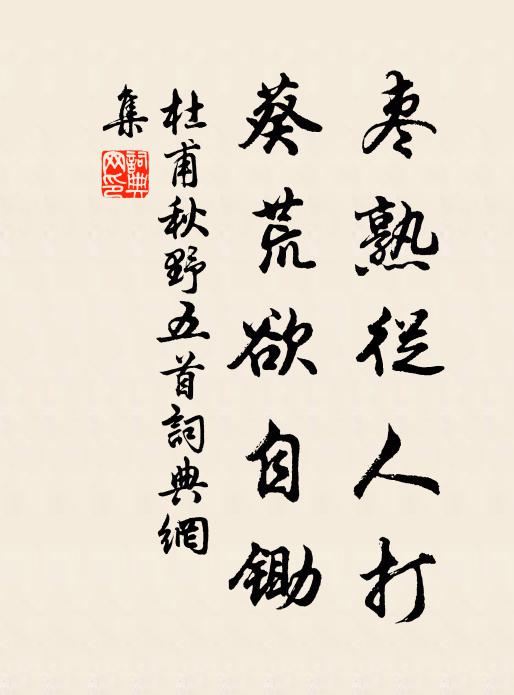 枣熟從人打
葵荒欲自鋤
杜甫秋野五首詞典網
集
詞典
网印